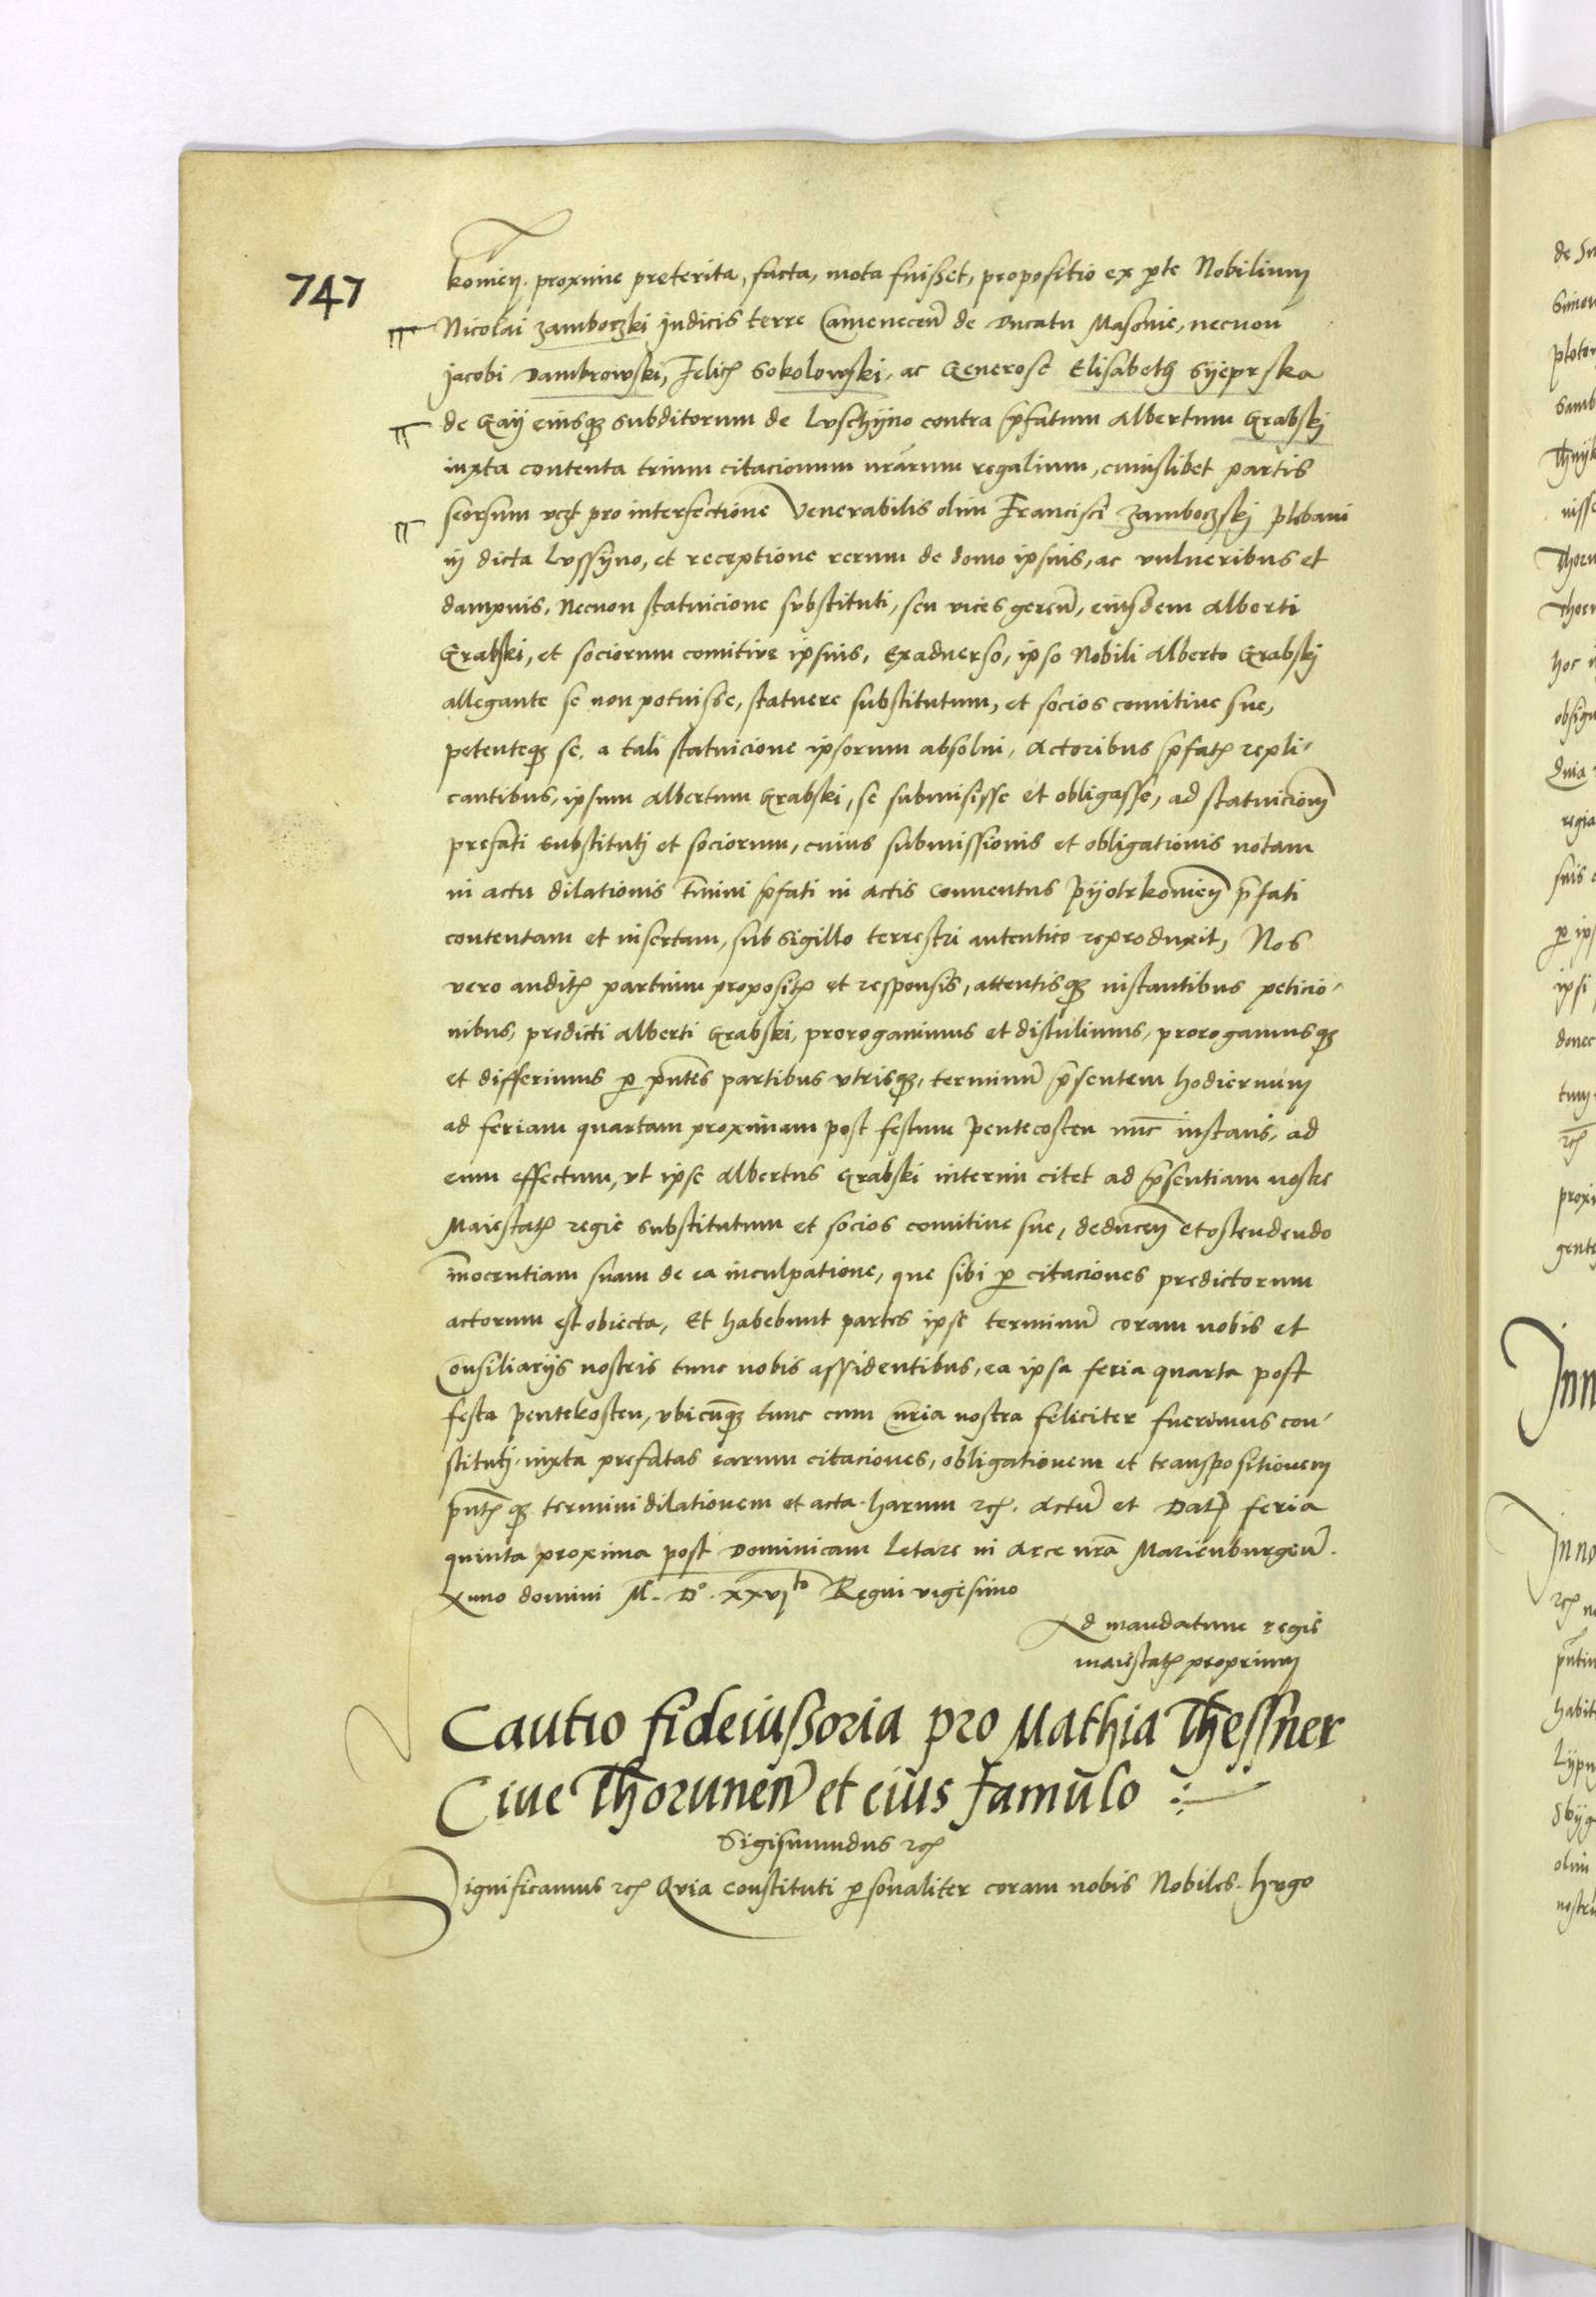 747
komien. proxime preterita, facta, mota fuisset, propositio ex pte Nobilium
Nicolai Zamboczki Judicis terre Camenecen de Ducatu Masovie, necnon
Jacobi Dambrowski, Felicis Sokolowski, ac Generose Elisabeth
de Gaÿ eiusque subditorum de Luschÿno contra pfatum Albertum Grabskj
iuxta contenta trium citacionum nrarum regalium, cuiuslibet partis
seorsum vcz pro interfectione Venerabilis olim Francisci Zamboczskj plebani
in dicta Lussÿno, et receptione rerum de domo ipsius, ac vulneribus et
dampnis, Necnon statuicione substituti, seu vices geren, eiusdem Alberti
Grabski, et sociorum comitive ipsius, Exadverso, ipso Nobili Alberto Grabskj
allegante se non potuisse, statuere substitutum, et socios comitive sue,
petenteque se, a tali statuicione ipsorum absolui, Actoribus pfatis repli-
cantibus, ipsum Albertum Grabski, se submisisse et obligasse, ad statuicionem
prefati substitutj et sociorum, cuius submissionis et obligationis notam
in actu dilationis tmini pfati in actis Conventus Pÿotrkomien pfati
contentam et insertam, sub sigillo terrestri autentico reproduxit, Nos
vero auditis partium propositis et responsis, attentisque instantibus peticio-
nibus, predicti Alberti Grabski, prorogavimus et distulimus, prorogamusque
et differimus p pntes partibus vtrisque, terminum psentem hodiernum
ad feriam quartam proximam post festum Pentecosten nunc instans, ad
eum effectum, vt ipse Albertus Grabski interim citet ad psentiam nostre
Maiestatis regie substitutum et socios comitive sue, deducen et ostendendo
innocentiam suam de ea inculpatione, que sibi p citaciones predictorum
actorum est obiecta, Et habebunt partes ipse terminum coram nobis et
Consiliarÿs nostris tunc nobis assidentibus, ea ipsa feria quarta post
festa Pentekosten, vbicunque tunc cum curia nostra feliciter fuerimus con-
stitutj iuxta prefatas earum citaciones, obligationem et transpositionem
pntisque termini dilationem et acta. harum etc. Actum et Datum feria
quinta proxima post Dominicam Letare in Arce nra Marienburgen.
Anno domini M. D°. XXVIto Regni vigesimo
Ad mandatum regie
maiestatis proprium
Cautio fideiussoria pro Mathia Thessner
Cive Thorunen et eius famulo
Sigismundus etc
Significamus etc Quia constituti psonaliter coram nobis Nobiles. Hugo